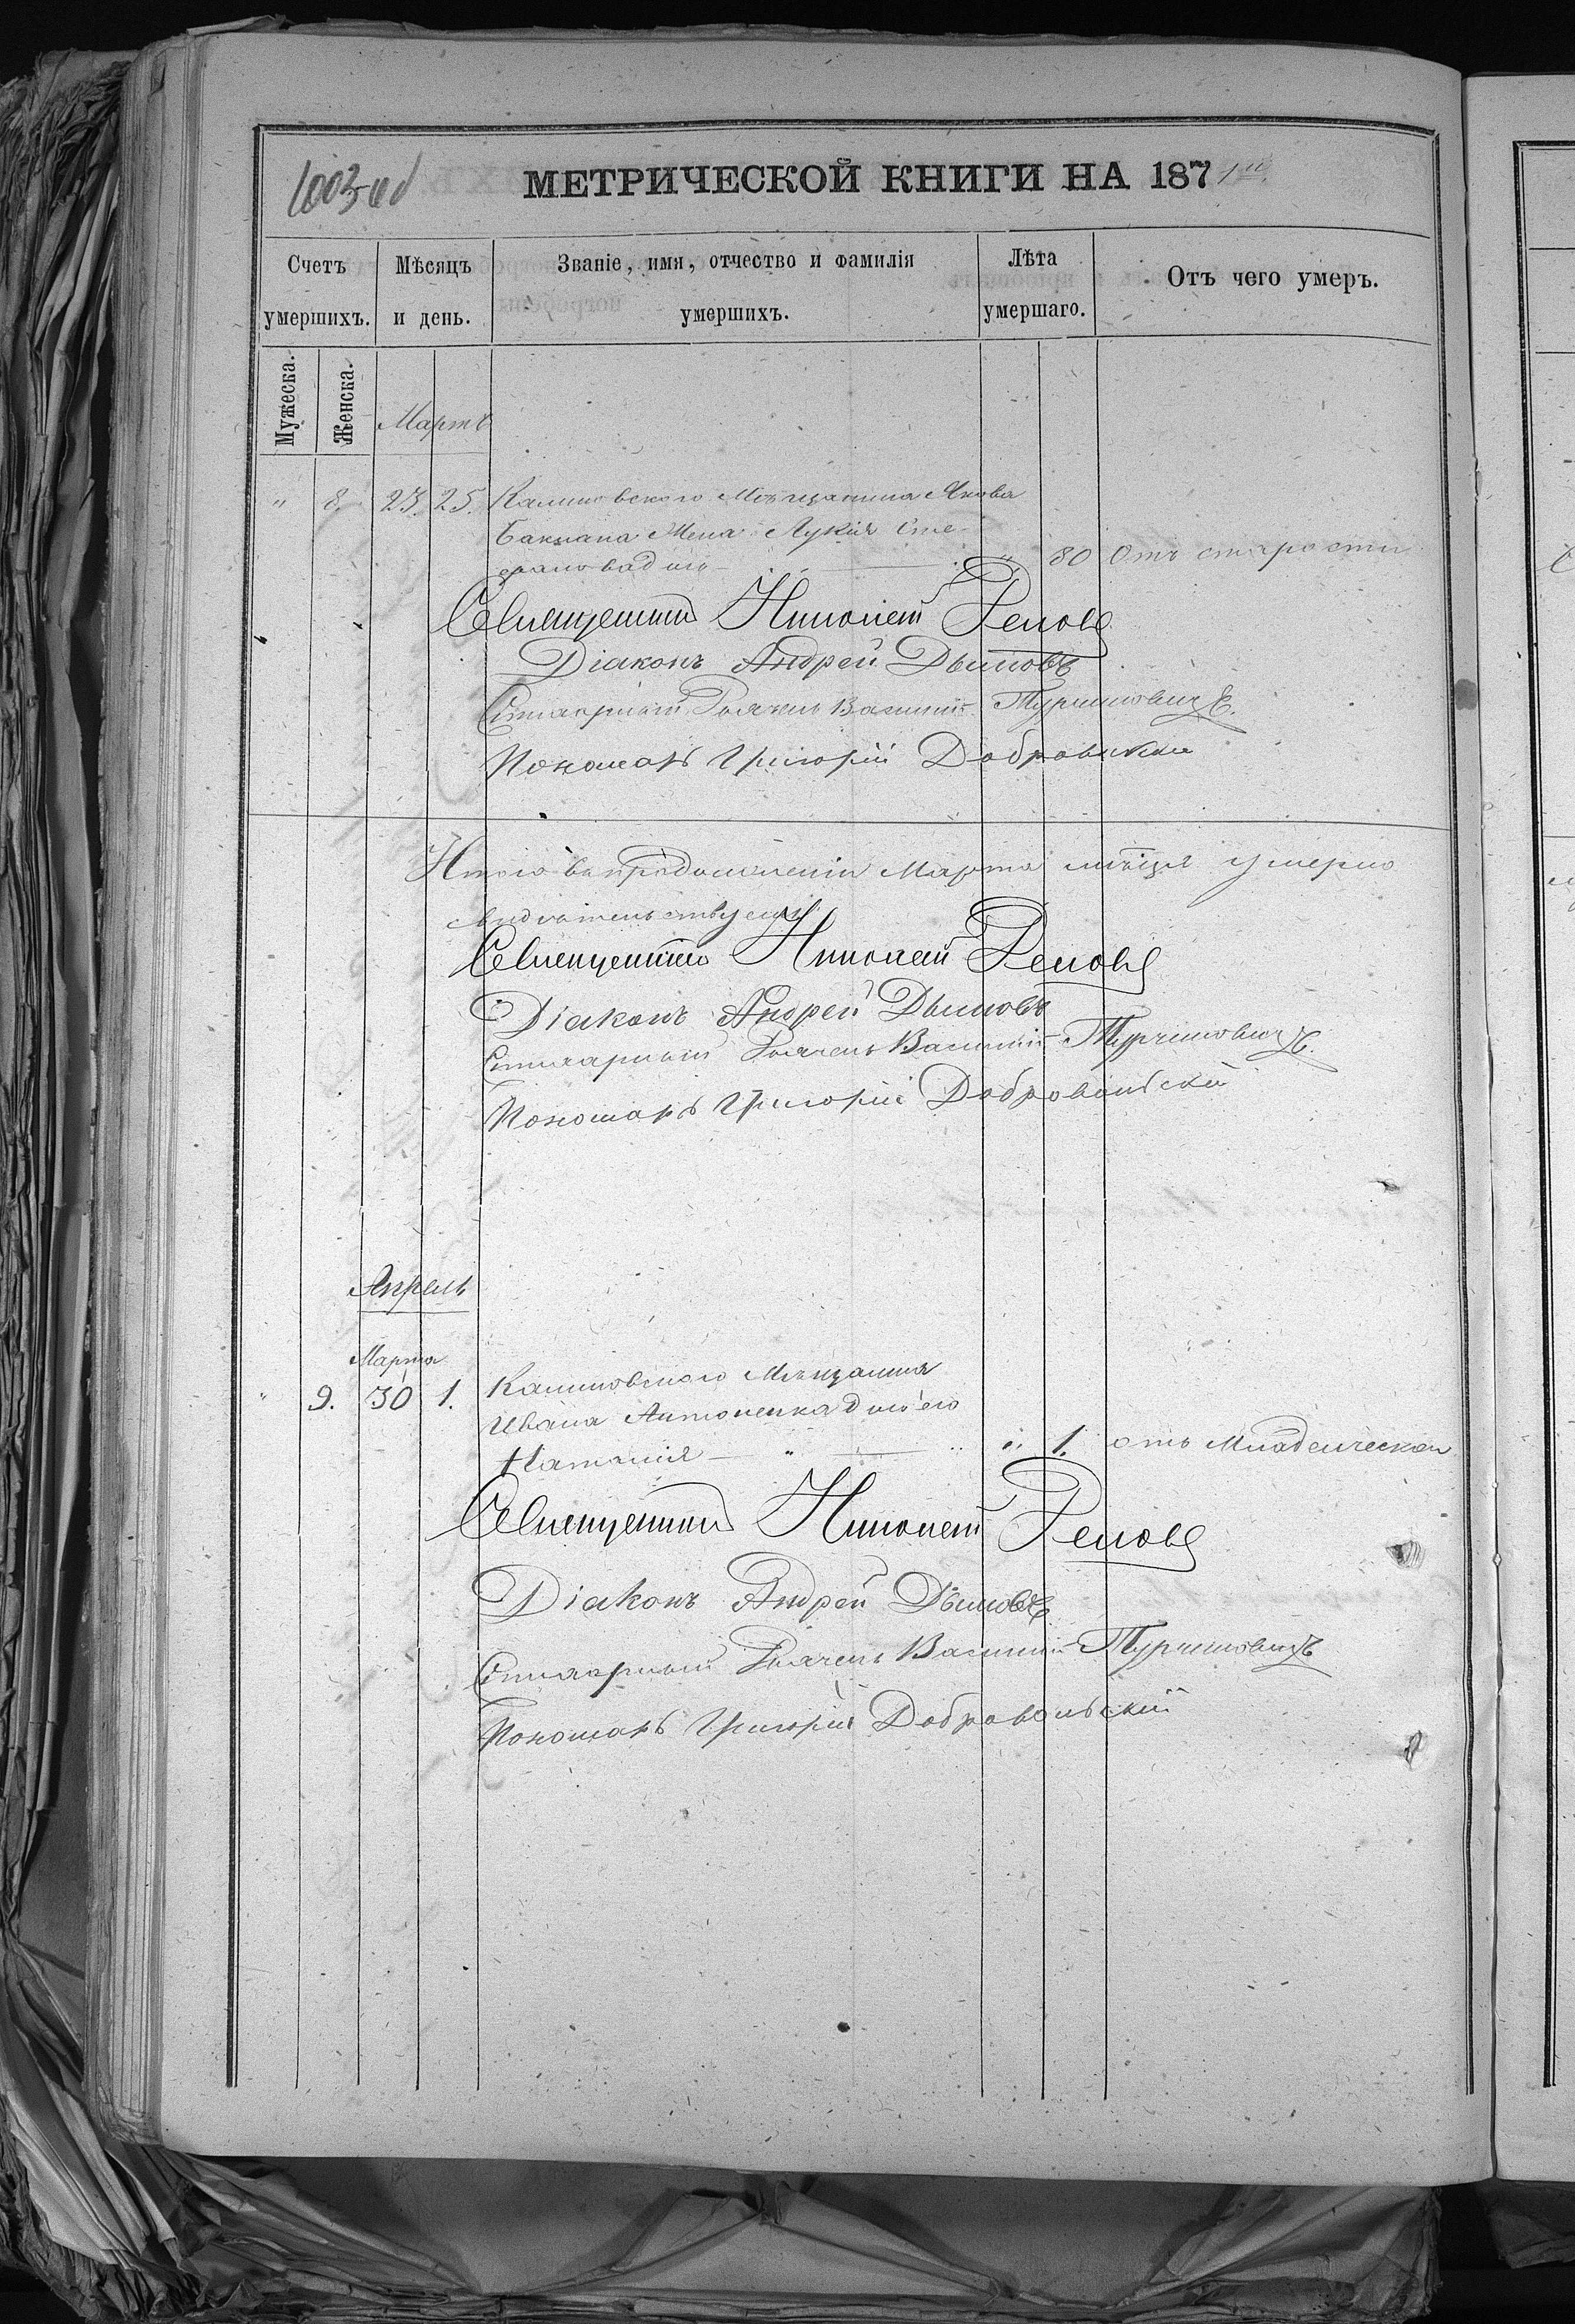 1003 об
МЕТРИЧЕСКОЙ КНИГИ НА 1871
Счетъ умершихъ.
Мѣсяцъ и день.
Званіе, имя, отчество и фамилія умершихъ.
Лѣта умершаго.
Отъ чего умеръ.
Мужеска.
Женска.
Мартъ
" 8. 23. 25. Калиновского Мѣщанина Якова
Жена Лукія Сте-
фанова " 80 Отъ старости
Священникъ Николай
Діаконъ Андрей Дымовъ
Стихарный Дьячекъ Василій
Пономарь Григорій
Итого въ продолженіи Марта мѣсяца умерло
свидѣтельствуемъ
Священникъ Николай
Діаконъ Андрей Дымовъ
Стихарный Дьячекъ Василій
Пономарь Григорій Добровольскій
Апрель
Марта
" 9. 30 1. Калиновского Мѣщанина
Ивана Антоненка дочь его
Наталія " " 1. отъ Младенческой
Священникъ Николай
Діаконъ Андрей Дымовъ
Стихарный Дьячекъ Василій
Пономарь Григорій Добровольскій